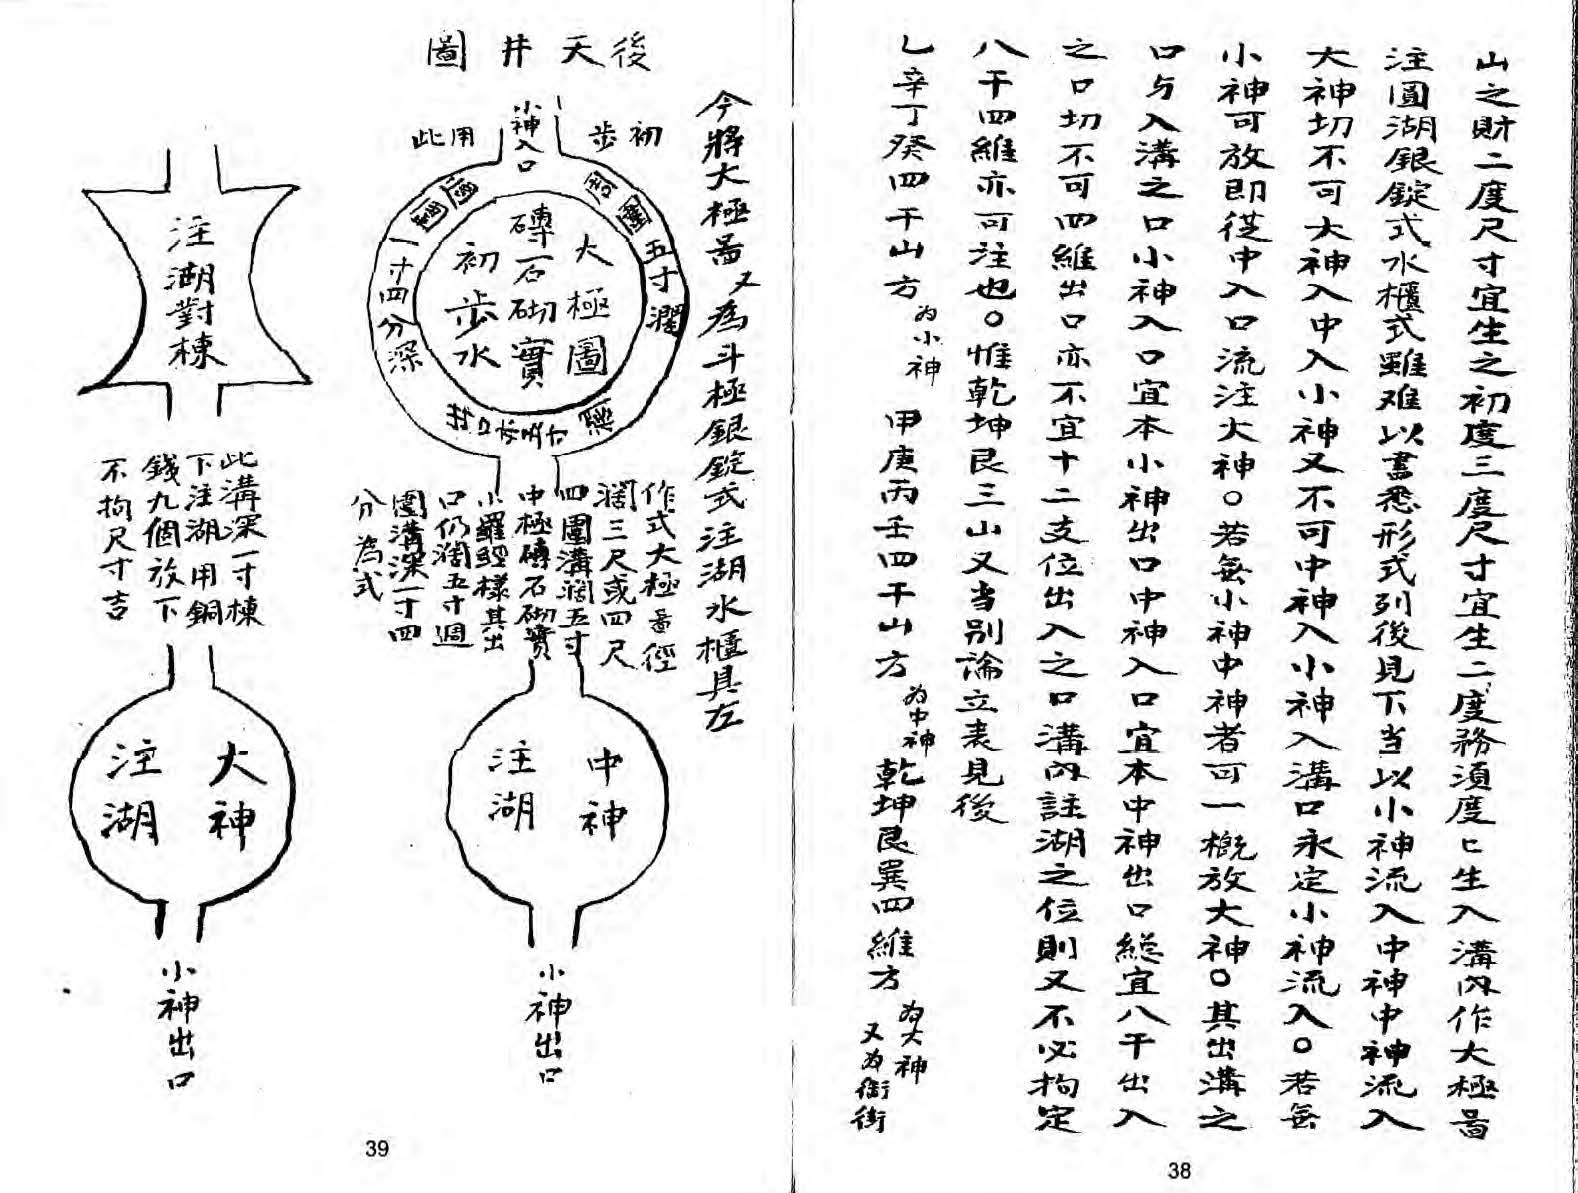 山之財二度尺寸宜生之初度三度尺寸宜生二度務須度匕生入溝內作大極啚
注圓湖銀錠式水櫃式雖难以書悉形式列後見下当以小神流入中神中神流入
大神切不可大神入中入小神又不可中神入小神入溝口永定小神流入○若無
小神可放即從中入口流注大神○若無小神中神者可一槪放大神○其出溝之
口与入溝之口小神入口宜本小神出口中神入口宜本中神出口総宜八干出入
之口切不可四維出口亦不宜十二支位出入之口溝內註湖之位則又不必拘定
八干四維亦可注也○惟乾坤艮三山又当别論立表見後
乚辛丁癸四干山方为小神 甲庚丙壬四干山方为中神 乾坤艮巽四維方为大神又为街
38
後天井圖
今將大極啚又為斗極銀錠式注湖水櫃具左
初步用此
小神入口
五寸濶
一寸四分深
大極圖
磚石砌實
初步水
作式大極啚徑
濶三尺或四尺
四圍溝濶五寸
中極磚石砌實
小羅經樣其出
口仍濶五寸週
圍溝深一寸四
分為式
中神
注湖
小神出口
注湖對棟
此溝深一寸棟
下注湖用銅
錢九個放下
不拘尺寸吉
大神
注湖
小神出口
39